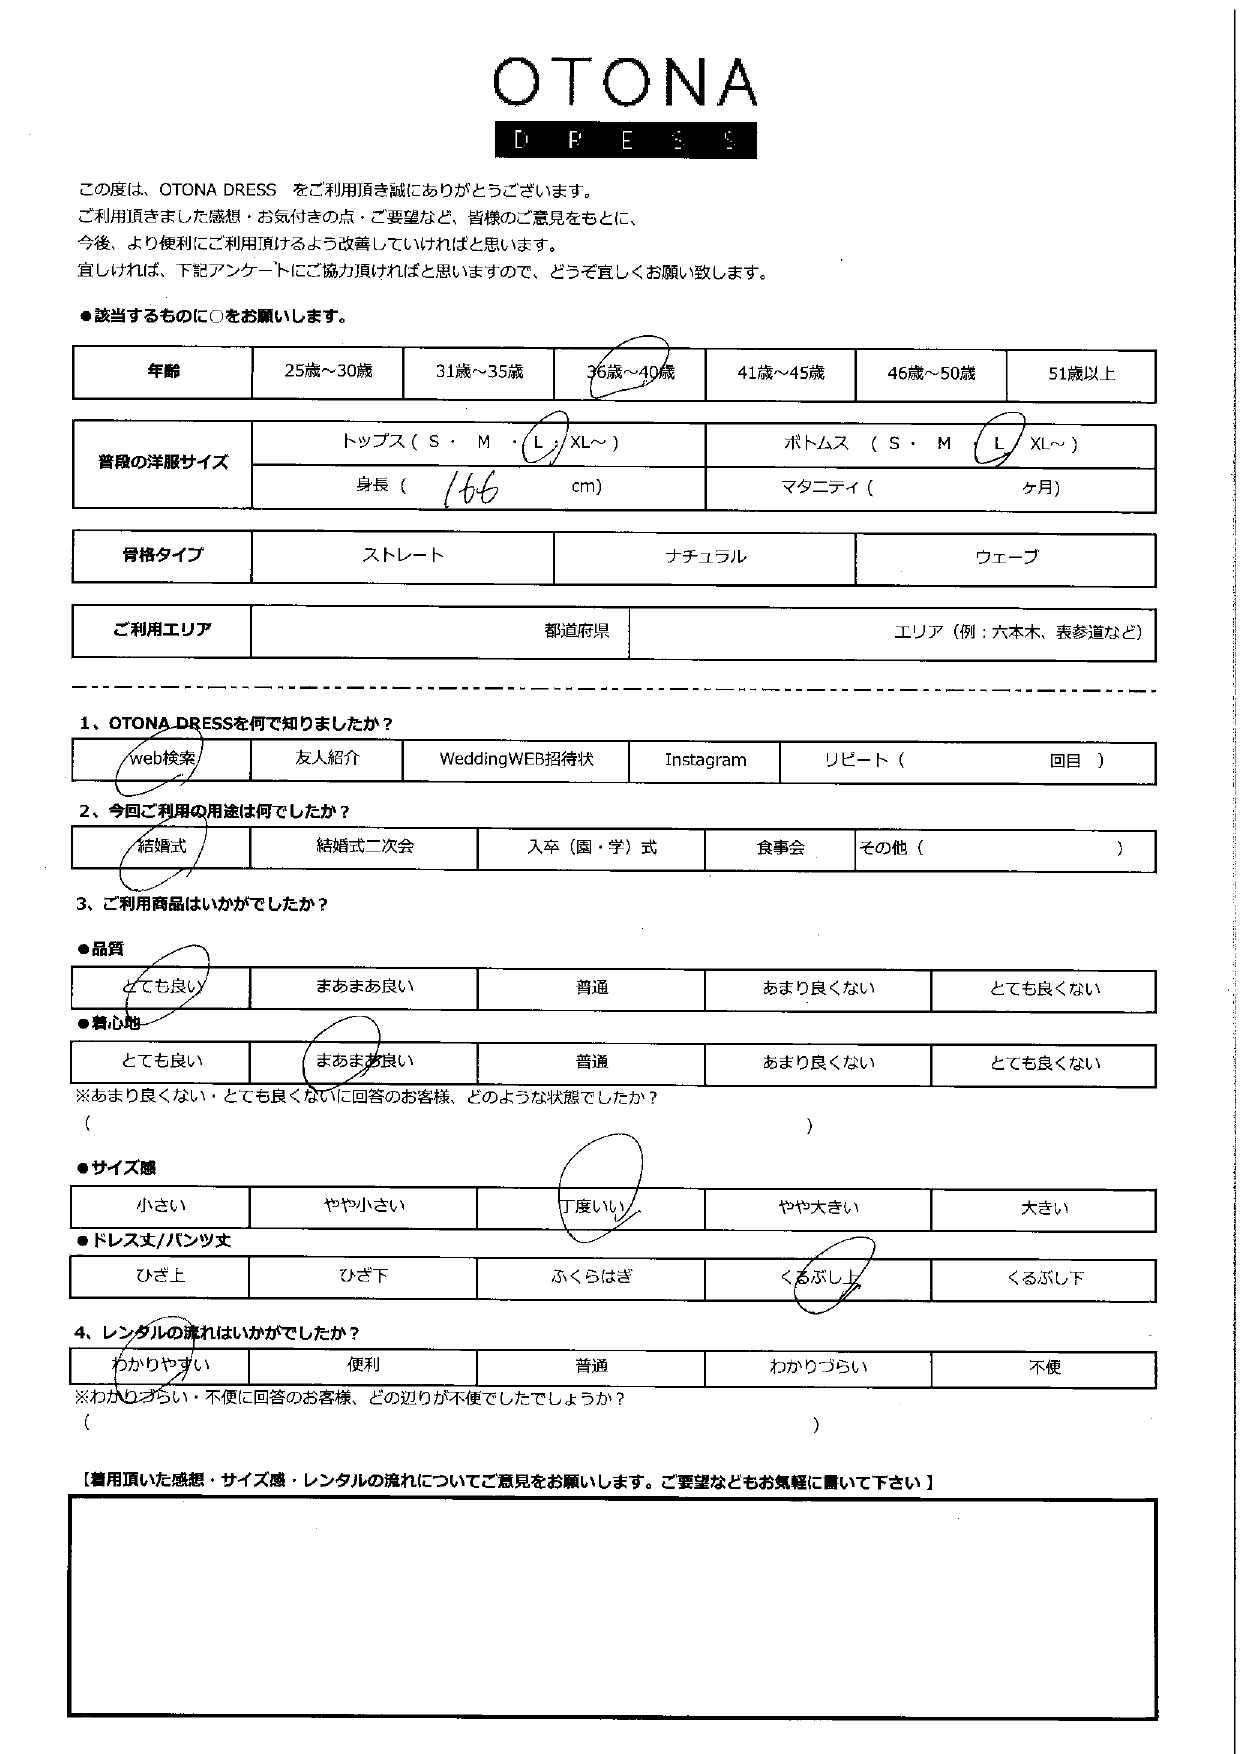 OTONA
DRESS
この度は、OTONA DRESS をご利用頂き誠にありがとうございます。
ご利用頂きました感想・お気付きの点・ご要望など、皆様のご意見をもとに、
今後、より便利にご利用頂けるよう改善していければと思います。
宜しければ、下記アンケートにご協力頂ければと思いますので、どうぞ宜しくお願い致します。
●該当するものに○をお願いします。
年齢 25歳～30歳 31歳～35歳 36歳～40歳 41歳～45歳 46歳～50歳 51歳以上
普段の洋服サイズ トップス ( S ・ M ・ L ・ XL～ ) ボトムス ( S ・ M ・ L XL～ )
身長 ( 166 cm) マタニティ ( ヶ月)
骨格タイプ ストレート ナチュラル ウェーブ
ご利用エリア 都道府県 エリア（例：六本木、表参道など）
1、OTONA DRESSを何で知りましたか？
web検索 友人紹介 WeddingWEB招待状 Instagram リピート ( 回目 )
2、今回ご利用の用途は何でしたか？
結婚式 結婚式二次会 入卒（園・学）式 食事会 その他 ( )
3、ご利用商品はいかがでしたか？
●品質
とても良い まあまあ良い 普通 あまり良くない とても良くない
●着心地
とても良い まあまあ良い 普通 あまり良くない とても良くない
※あまり良くない・とても良くないに回答のお客様、どのような状態でしたか？
( )
●サイズ感
小さい やや小さい 丁度いい やや大きい 大きい
●ドレス丈/パンツ丈
ひざ上 ひざ下 ふくらはぎ くるぶし上 くるぶし下
4、レンタルの流れはいかがでしたか？
わかりやすい 便利 普通 わかりづらい 不便
※わかりづらい・不便に回答のお客様、どの辺りが不便でしたでしょうか？
( )
【着用頂いた感想・サイズ感・レンタルの流れについてご意見をお願いします。ご要望などもお気軽に書いて下さい 】